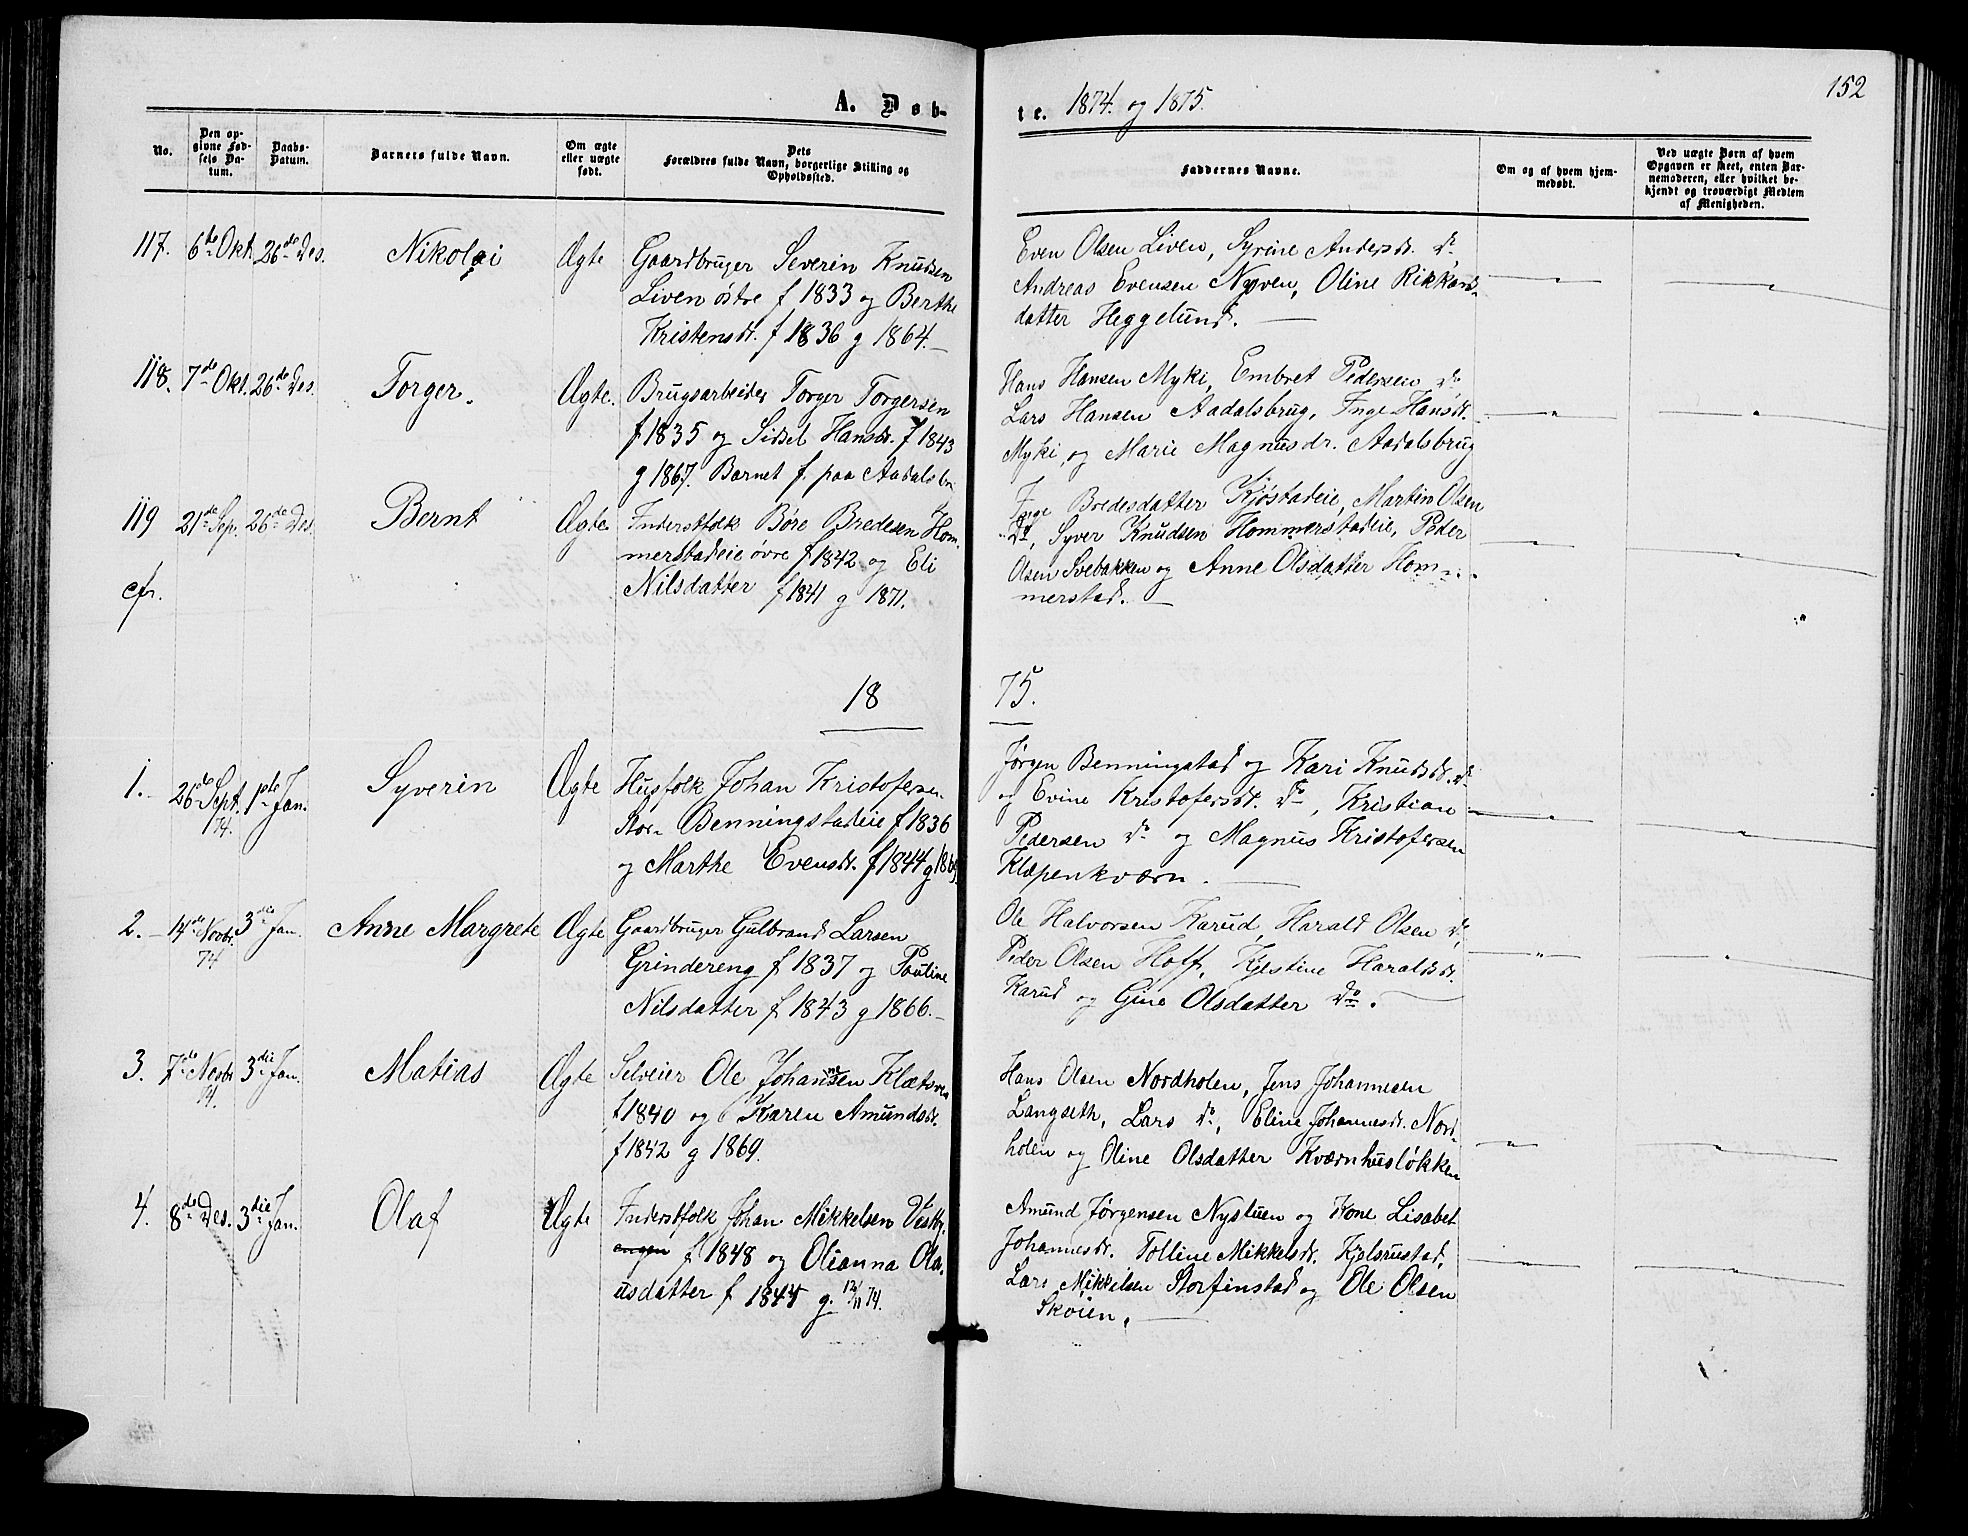 152
A. Døb-
te. 1874. og 1875.
No.
Den op-
givne Fød-
sels Da-
tum.
Daabs-
Datum.
Barnets fulde Navn.
Om ægte
eller uægte
født.
Dets
Forældres fulde Navn, borgerlige Stilling og
Opholdssted.
Faddernes Navne.
Om og af hvem hjem-
medøbt.
Ved uægte Børn af hvem
Opgaven er skeet, enten Bar-
nemoderen, eller hvilket be-
kjendt og troværdigt Medlem
af Menigheden.
117. 6de Okt. 26de Des. Nikolai Ægte
Gaardbruger Severin Knudsen
Liven østre f 1833 og Berthe
Kristensdr. f 1836 g 1864.
Even Olsen Liven, Syrine Andersdr. do
Andreas Evensen Nyven, Oline Rikkards-
datter Heggelund.
118. 7de Okt. 26de Des. Torger. Ægte.
Brugsarbeider Torger Torgersen
f 1835 og Sidsel Hansdr. f 1843
g 1867. Barnet f. paa Aadalsbr
Hans Hansen Myki, Embret Pedersen do
Lars Hansen Aadalsbrug, Inge Hansdr.
Myki, og Marie Magnusdr. Aadalsbrug
119 21de Sep. 26de Des. Bernt Ægte
cfr.
Inderstfolk Børe Bredesen Hom-
merstadeie øvre f 1842 og Eli
Nilsdatter f 1841 g 1871.
Inge Bredesdatter Kjøstadeie, Martin Olsen
do, Syver Knudsen Hommerstadeie, Peder
Olsen Svebakken og Anne Olsdatter Hom-
merstad.
18 75.
1. 26de Sept. 74. 1ste Jan. Syverin Ægte
Husfolk Johan Kristofersen
Stor- Benningstadeie f 1836
og Marthe Evensdr. f 1844 g 1869
Jørgen Benningstad og Kari Knudsdr. do
og Evine Kristofersdr. do, Kristian
Pedersen do og Magnus Kristofersen
Klæpenkværn.
2. 14de Novbr. 74 3die Jan. Anne Margrete Ægte
Gaardbruger Gulbrand Larsen
Grindereng f 1837 og Pauline
Nilsdatter f 1843 g 1866.
Ole Halvorsen Karud, Harald Olsen do,
Peder Olsen Hoff, Kjestine Haraldsdr.
Karud og Gine Olsdatter do.
3. 7de Novbr 74. 3die Jan. Matias Ægte
Selveier Ole Johannesen Klætsvea
f 1840 og Karen Amundsdr.
f 1842 g 1869.
Hans Olsen Nordholen, Jens Johannesen
Langseth, Lars do, Eline Johannesdr. Nord-
holen og Oline Olsdatter Kværnhusløkken
4. 8de Des. 3die Jan. Olaf Ægte
Inderstfolk Johan Mikkelsen
engen f 1848 og Olianna Ola-
usdatter f 1844 g. 12/11 74.
Amund Jørgensen Nystuen og Kone Lisabet
Johannesdr. Tolline Mikkelsdr. Kjelsrustad,
Lars Mikkelsen Storfinstad og Ole Olsen
Skøien.